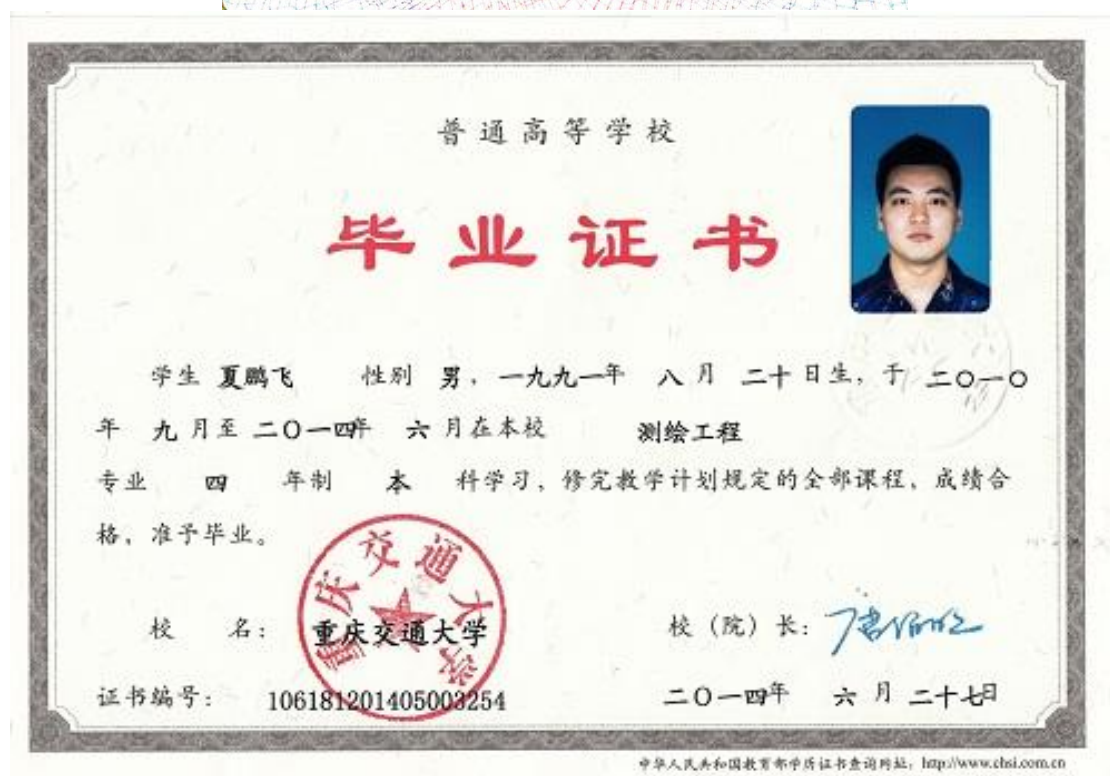 普通高等学校
毕业证书
学生 夏鹏飞 性别 男，一九九一年 八月 二十日生，于 二〇一〇
年 九月至 二〇一四年 六月在本校 测绘工程
专业 四 年制 本 科学习，修完教学计划规定的全部课程，成绩合
格，准予毕业。
重庆交通大学
校 名： 重庆交通大学 校（院）长：
证书编号： 106181201405003254 二〇一四年 六月 二十七日
中华人民共和国教育部学历证书查询网址：http://www.chsi.com.cn